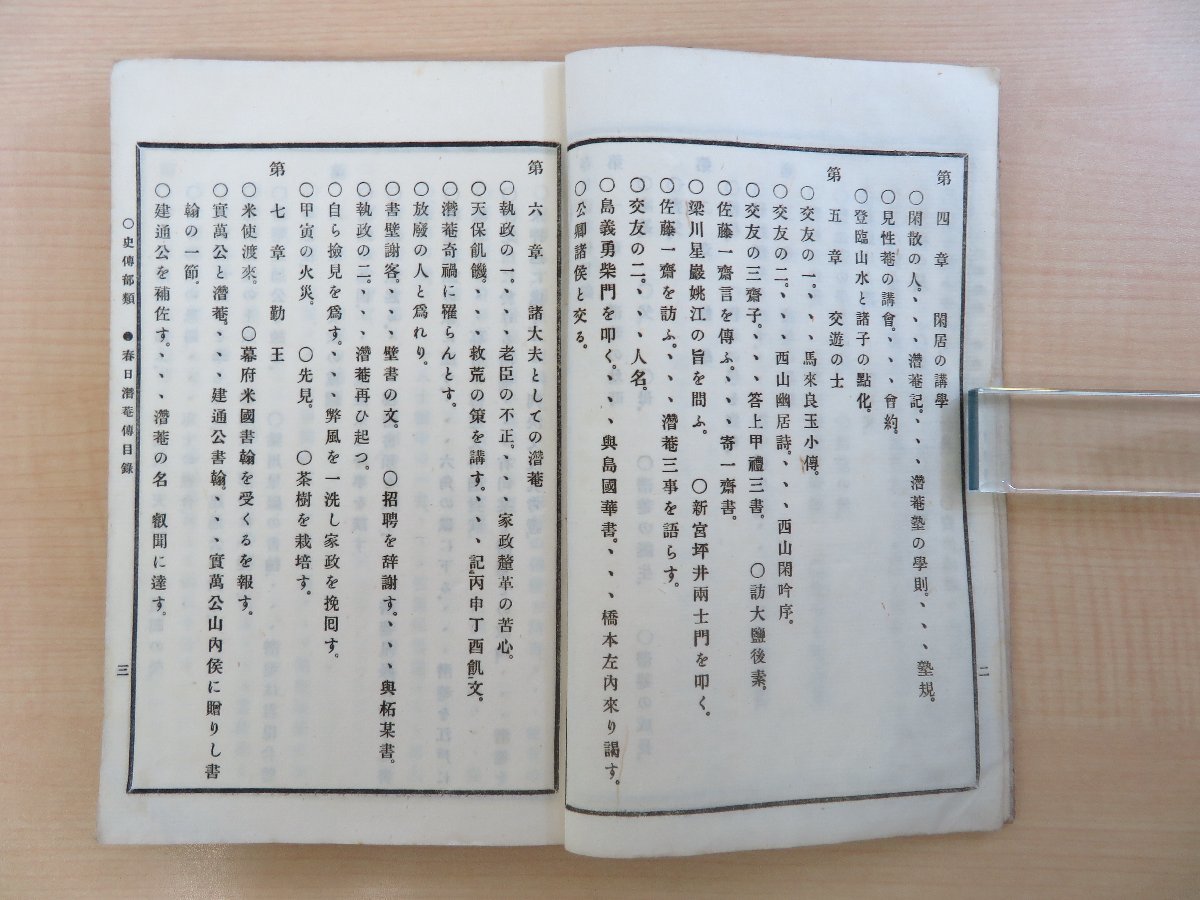 第四章　閑居の講學
○閑散の人。、、、潛菴記。、、、潛菴塾の學則。、、、塾規。
○見性菴の講會。、、、會約。
○登臨山水と諸子の點化。
第五章　交遊の士
○交友の一。、、、馬來良玉小傳。
○交友の二。、、、西山幽居詩。、、、西山閑吟序。
○交友の三齋子。、、、答上甲禮三書。　○訪大鹽後素。
○佐藤一齋言を傳ふ。、、、寄一齋書。
○梁川星巖姚江の旨を問ふ。　○新宮坪井兩士門を叩く。
○佐藤一齋を訪ふ。、、、潛菴三事を語らす。
○交友の二。、、、人名。
○島義勇柴門を叩く。、、、與島國華書。、、、橋本左內來り謁す。
○公卿諸侯と交る。
二
第六章　諸大夫としての潛菴
○執政の一。、、、老臣の不正。、、、家政釐革の苦心。
○天保飢饑。、、、救荒の策を講す。、、、記丙申丁酉飢文。
○潛菴奇禍に罹らんとす。
○放廢の人と爲れり。
○書壁謝客。、、、壁書の文。　○招聘を辞謝す。、、、與柘某書。
○執政の二。、、、潛菴再ひ起つ。
○自ら撿見を爲す。、、、弊風を一洗し家政を挽回す。
○甲寅の火災。　○先見。　○茶樹を栽培す。
第七章　勤王
○米使渡來。　○幕府米國書翰を受くるを報す。
○實萬公と潛菴。、、、建通公書翰。、、、實萬公山內侯に贈りし書
翰の一節。
○建通公を補佐す。、、、潛菴の名　叡聞に達す。
○史傳部類　●春日潛菴傳目錄
三